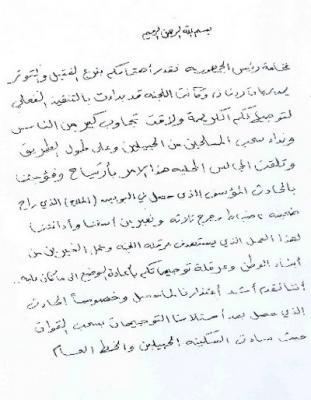 بسم الله الرحمن الرحيم
فخامة رئيس الجمهورية نقدر أهتمامكم بنزع الفتيل والتوتر
وكانت اللجنه قد بدأت بالتنفيذ الفعلي
لتوجيهاتكم الكريمة ولاقت تجاوب كبير من الناس
وبداء سحب المسلحين من الجبلين وعلى طول الطريق
وتلقت المجالس المحليه هذا الامر بأرتياح وفوجئنا
بالحادث المؤسف الذي حصل في البوليس (الملاح) الذي راح
ضحيته ضابط وجرح ثلاثه ونعبر عن أسفنا وأدانتنا
لهذا العمل الذي يستهدف عرقلة اللجنه وعمل الخيرين من
أبناء الوطن وعرقلة توجيهاتكم بأعادة الوضع الى ما كان عليه..
أننا نقدم أشد أعتذارنا لما حصل وخصوصاً الحادث
الذي حصل بعد أستلامنا التوجيهات بسحب القوات
حيث سادت السكينه الجبلين والخط العام